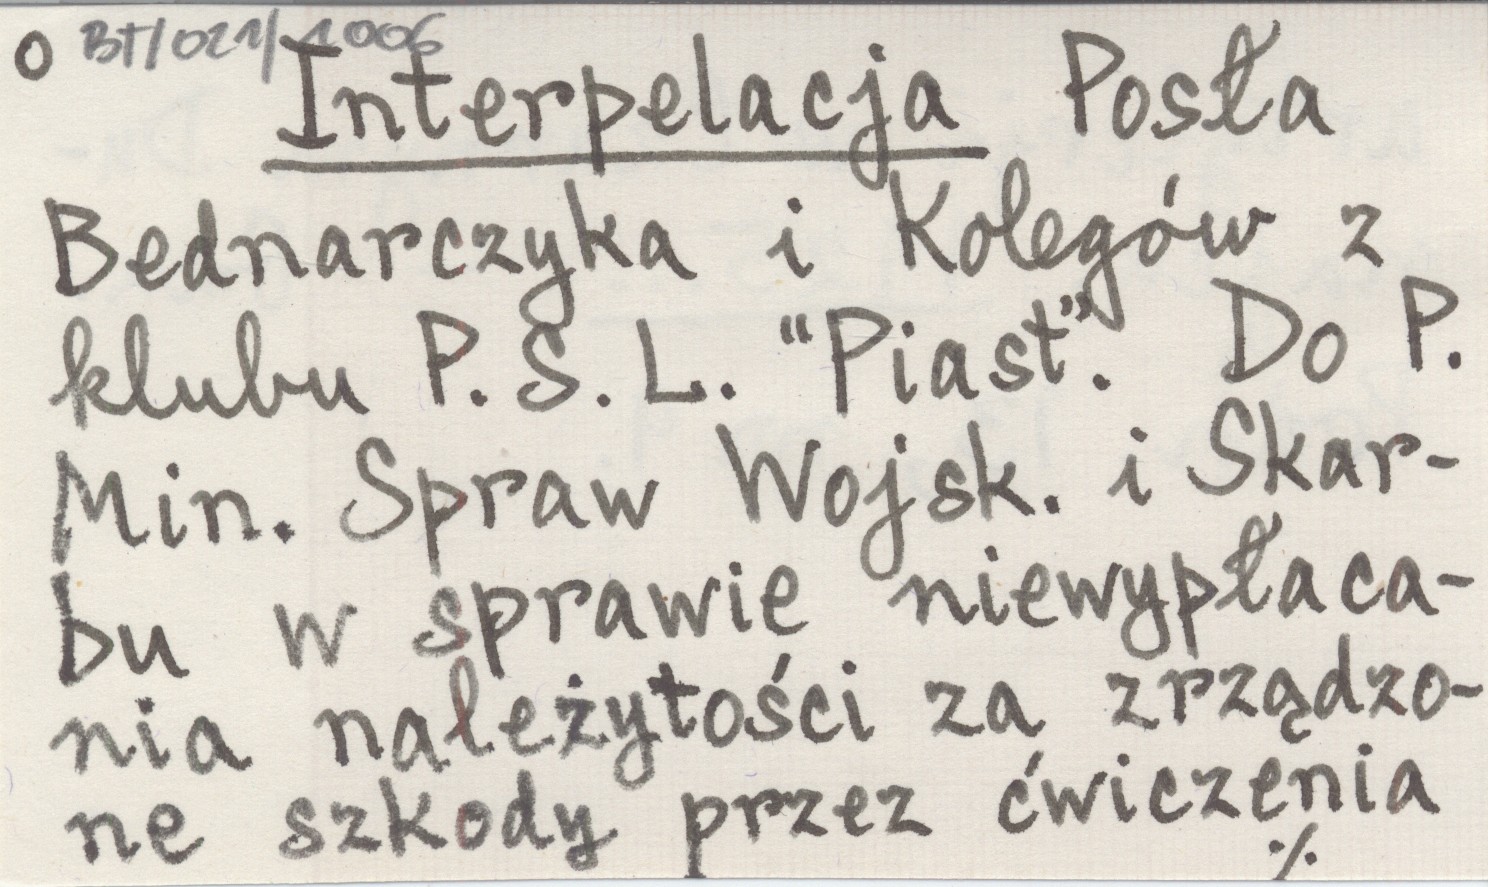 O BT/021/1006
Interpelacja Posła
Bednarczyka i Kolegów z
klubu P. S. L. "Piast". Do P.
Min. Spraw Wojsk. i Skar-
bu w sprawie niewypłaca-
nia należytości za zrządzo-
ne szkody przez ćwiczenia
./.